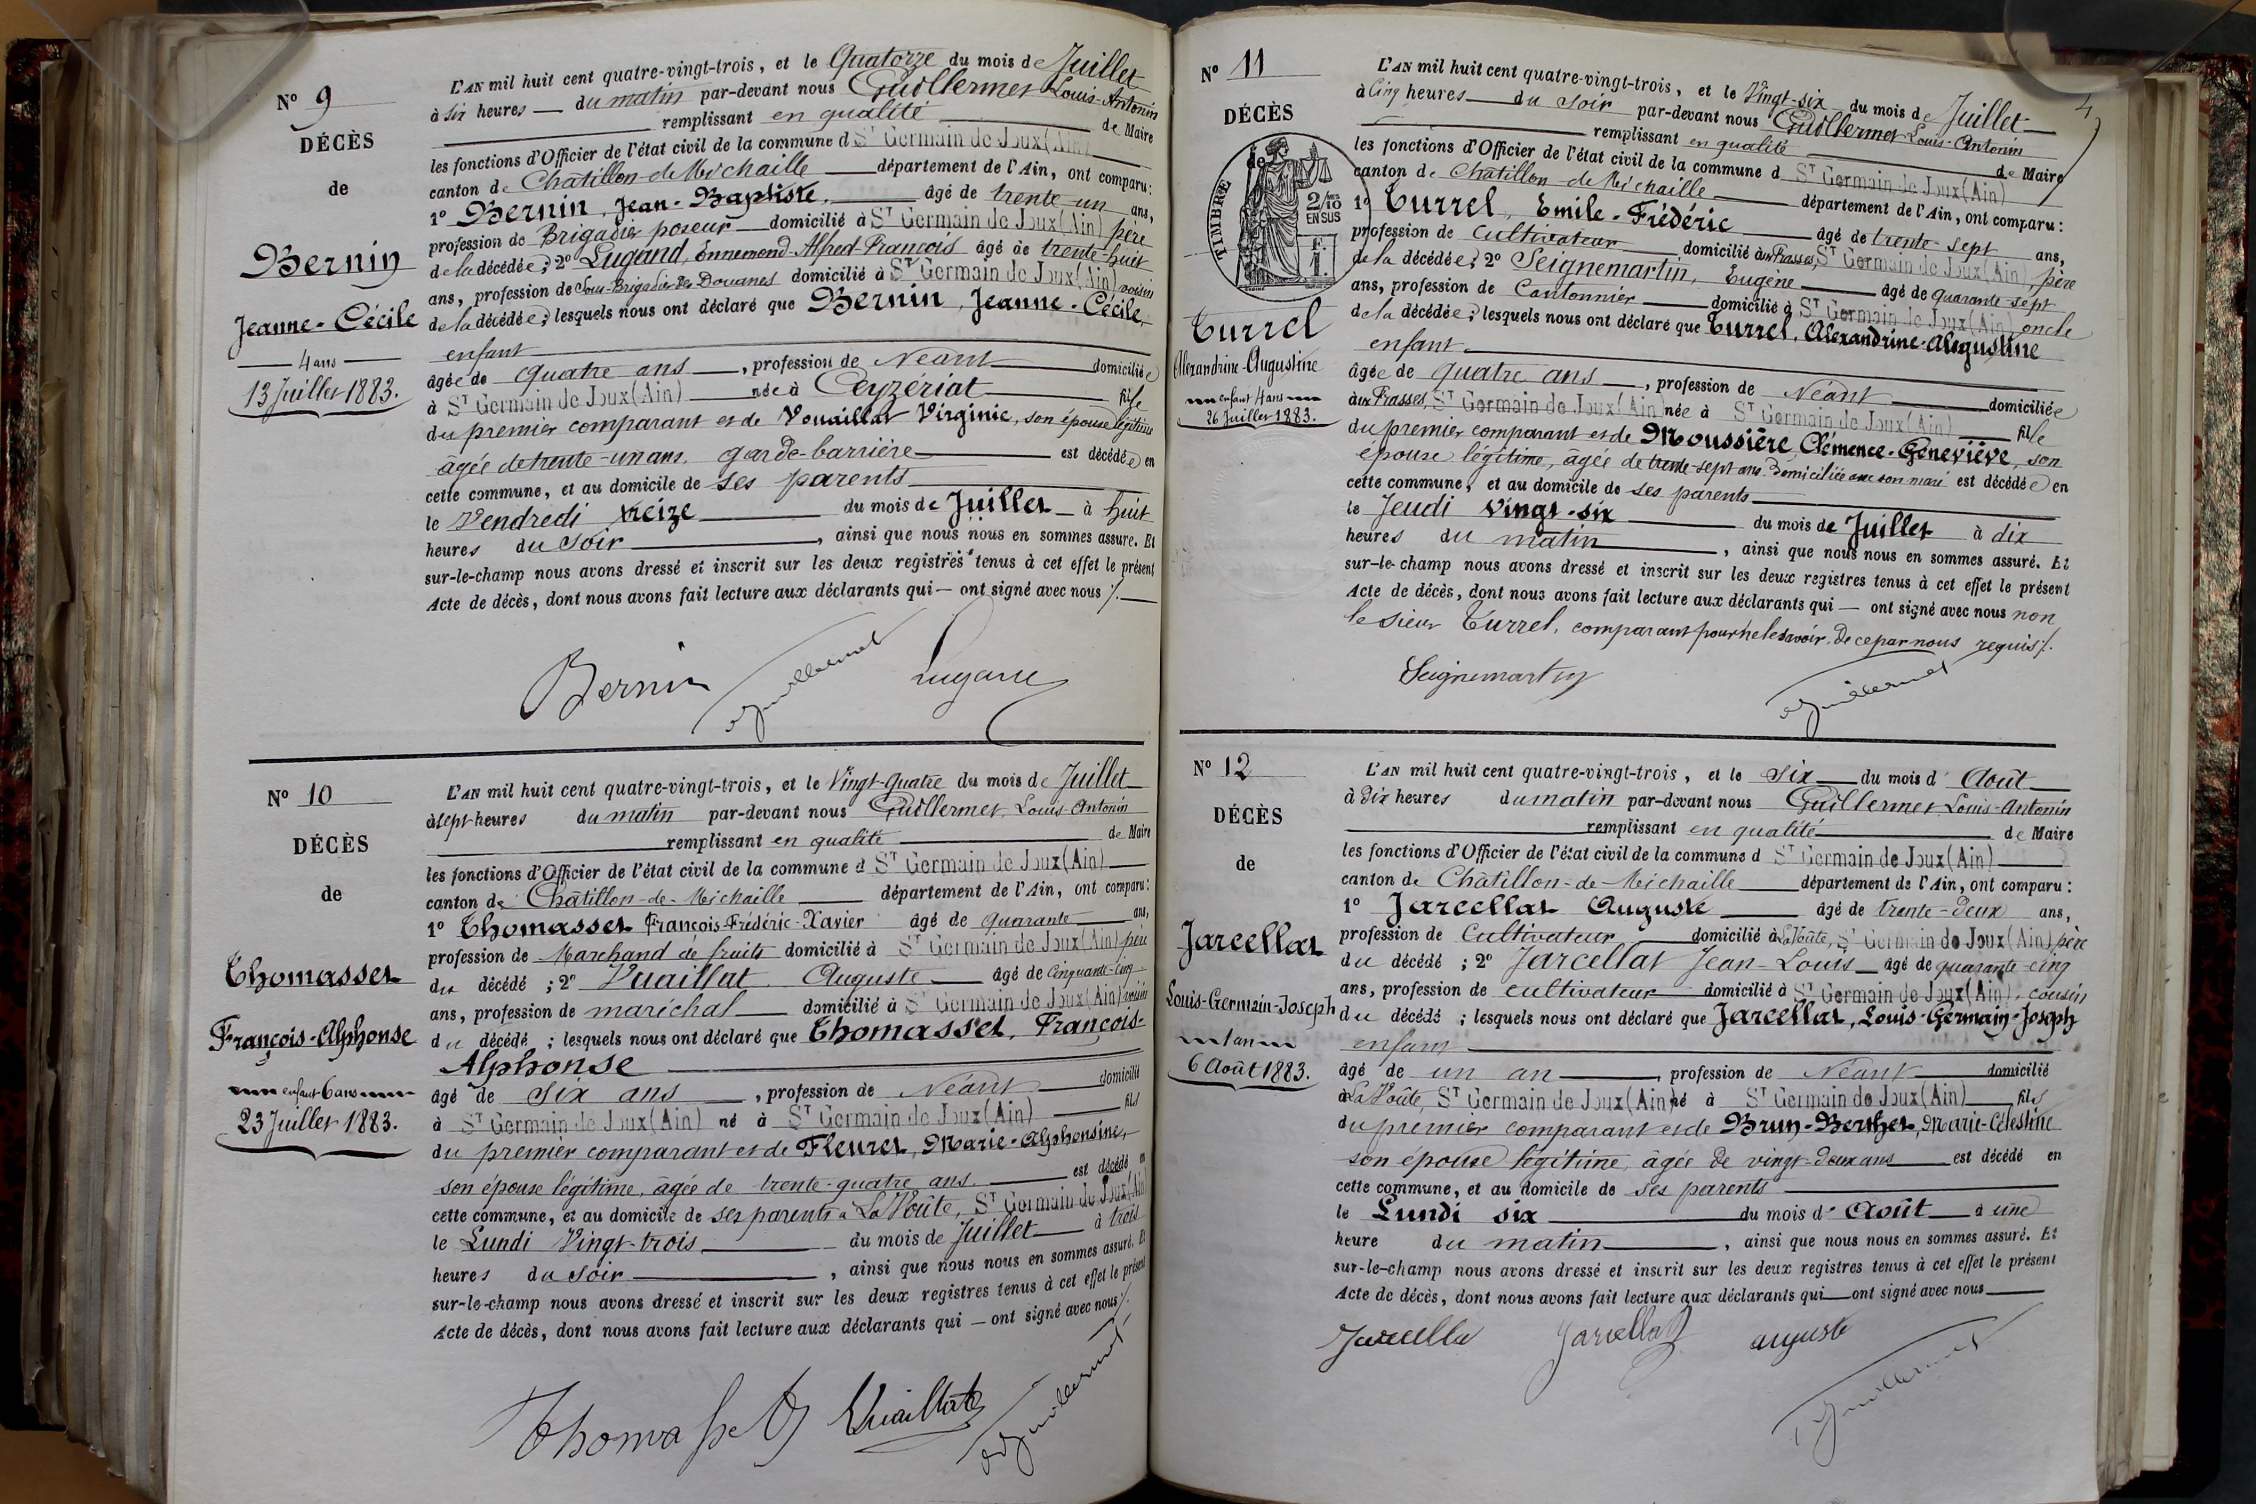 N° 9
DÉCÈS
de
Bernin
Jeanne-Cécile
4 ans
13 Juillet 1883.
L'AN mil huit cent quatre-vingt-trois, et le Quatorze du mois de Juillet
à six heures du matin par-devant nous Guillermet Louis-Antonin
remplissant en qualité de Maire
les fonctions d'Officier de l'état civil de la commune d St Germain de Joux (Ain)
canton de Châtillon-de-Michaille département de l'Ain, ont comparu:
1° Bernin, Jean-Baptiste, âgé de trente-un ans,
profession de Brigadier poseur domicilié à St Germain de Joux (Ain) père
de la décédée; 2° Lugand, Ennemond-Alfred-François âgé de trente-huit
ans, profession de Sous-Brigadier des Douanes domicilié à St Germain de Joux (Ain) voisin
de la décédée; lesquels nous ont déclaré que Bernin, Jeanne-Cécile,
enfant
âgée de quatre ans, profession de Néant domiciliée
à St Germain de Joux (Ain) née à Ceyzériat fille
du premier comparant et de Vouaillat Virginie, son épouse légitime
âgée de trente-un ans, garde-barrière est décédée en
cette commune, et au domicile de ses parents
le Vendredi treize du mois de Juillet à huit
heures du soir, ainsi que nous nous en sommes assuré. Et
sur-le-champ nous avons dressé et inscrit sur les deux registres tenus à cet effet le présent
Acte de décès, dont nous avons fait lecture aux déclarants qui — ont signé avec nous /.
Bernin Guillermet Lugand
N° 10
DÉCÈS
de
Thomasset
François-Alphonse
enfant 6 ans
23 Juillet 1883.
L'AN mil huit cent quatre-vingt-trois, et le Vingt-quatre du mois de Juillet
à sept heures du matin par-devant nous Guillermet, Louis-Antonin
remplissant en qualité de Maire
les fonctions d'Officier de l'état civil de la commune d St Germain de Joux (Ain)
canton de Châtillon-de-Michaille département de l'Ain, ont comparu:
1° Thomasset François-Frédéric-Xavier âgé de quarante ans,
profession de Marchand de fruits domicilié à St Germain de Joux (Ain) père
du décédé; 2° Vuaillat Auguste âgé de Cinquante-cinq
ans, profession de maréchal domicilié à St Germain de Joux (Ain) voisin
du décédé; lesquels nous ont déclaré que Thomasset, François-
Alphonse
âgé de six ans, profession de Néant domicilié
à St Germain de Joux (Ain) né à St Germain de Joux (Ain) fils
du premier comparant et de Fleuret, Marie-Alphonsine,
son épouse légitime, âgée de trente-quatre ans. est décédé en
cette commune, et au domicile de ses parents à La Voûte, St Germain de Joux (Ain)
le Lundi Vingt-trois du mois de Juillet à trois
heures du soir, ainsi que nous nous en sommes assuré. Et
sur-le-champ nous avons dressé et inscrit sur les deux registres tenus à cet effet le présent
Acte de décès, dont nous avons fait lecture aux déclarants qui — ont signé avec nous /.
Thomasset Vuaillat Guillermet
4
N° 11
DÉCÈS
de
TIMBRE
2/10 EN SUS
Turrel
Alexandrine-Augustine
enfant 4 ans
26 Juillet 1883.
L'AN mil huit cent quatre-vingt-trois, et le Vingt-six du mois de Juillet
à Cinq heures du soir par-devant nous Guillermet Louis-Antonin
remplissant en qualité de Maire
les fonctions d'Officier de l'état civil de la commune d St Germain de Joux (Ain)
canton de Châtillon-de-Michaille département de l'Ain, ont comparu:
1° Turrel, Emile-Frédéric âgé de trente-sept ans,
profession de cultivateur domicilié aux Frasses, St Germain de Joux (Ain), père
de la décédée; 2° Seignemartin, Eugène âgé de quarante-sept
ans, profession de Cantonnier domicilié à St Germain de Joux (Ain) oncle
de la décédée; lesquels nous ont déclaré que Turrel, Alexandrine-Augustine
enfant
âgée de quatre ans, profession de Néant domiciliée
aux Frasses, St Germain de Joux (Ain) née à St Germain de Joux (Ain) fille
du premier comparant et de Moussière Clémence-Geneviève, son
épouse légitime, âgée de trente-sept ans domiciliée avec son mari est décédée en
cette commune, et au domicile de ses parents
le Jeudi vingt-six du mois de Juillet à dix
heures du matin, ainsi que nous nous en sommes assuré. Et
sur-le-champ nous avons dressé et inscrit sur les deux registres tenus à cet effet le présent
Acte de décès, dont nous avons fait lecture aux déclarants qui — ont signé avec nous non
le sieur Turrel, comparant pour ne le savoir, de ce par nous requis /.
Seignemartin Guillermet
N° 12
DÉCÈS
de
Jarcellat
Louis-Germain-Joseph
1 an
6 Août 1883.
L'AN mil huit cent quatre-vingt-trois, et le six du mois d' Août
à dix heures du matin par-devant nous Guillermet Louis-Antonin
remplissant en qualité de Maire
les fonctions d'Officier de l'état civil de la commune d St Germain de Joux (Ain)
canton de Châtillon-de-Michaille département de l'Ain, ont comparu:
1° Jarcellat Auguste âgé de trente-deux ans,
profession de Cultivateur domicilié à La Voûte, St Germain de Joux (Ain) père
du décédé; 2° Jarcellat Jean-Louis âgé de quarante-cinq
ans, profession de cultivateur domicilié à St Germain de Joux (Ain), cousin
du décédé; lesquels nous ont déclaré que Jarcellat, Louis-Germain-Joseph
enfant
âgé de un an, profession de Néant domicilié
à La Voûte, St Germain de Joux (Ain) né à St Germain de Joux (Ain) fils
du premier comparant et de Brun-Berthet, Marie-Célestine
son épouse légitime, âgée de vingt-deux ans est décédé en
cette commune, et au domicile de ses parents
le Lundi six du mois d' Août à une
heure du matin, ainsi que nous nous en sommes assuré. Et
sur-le-champ nous avons dressé et inscrit sur les deux registres tenus à cet effet le présent
Acte de décès, dont nous avons fait lecture aux déclarants qui — ont signé avec nous
Jarcellat Jarcellat auguste
Guillermet